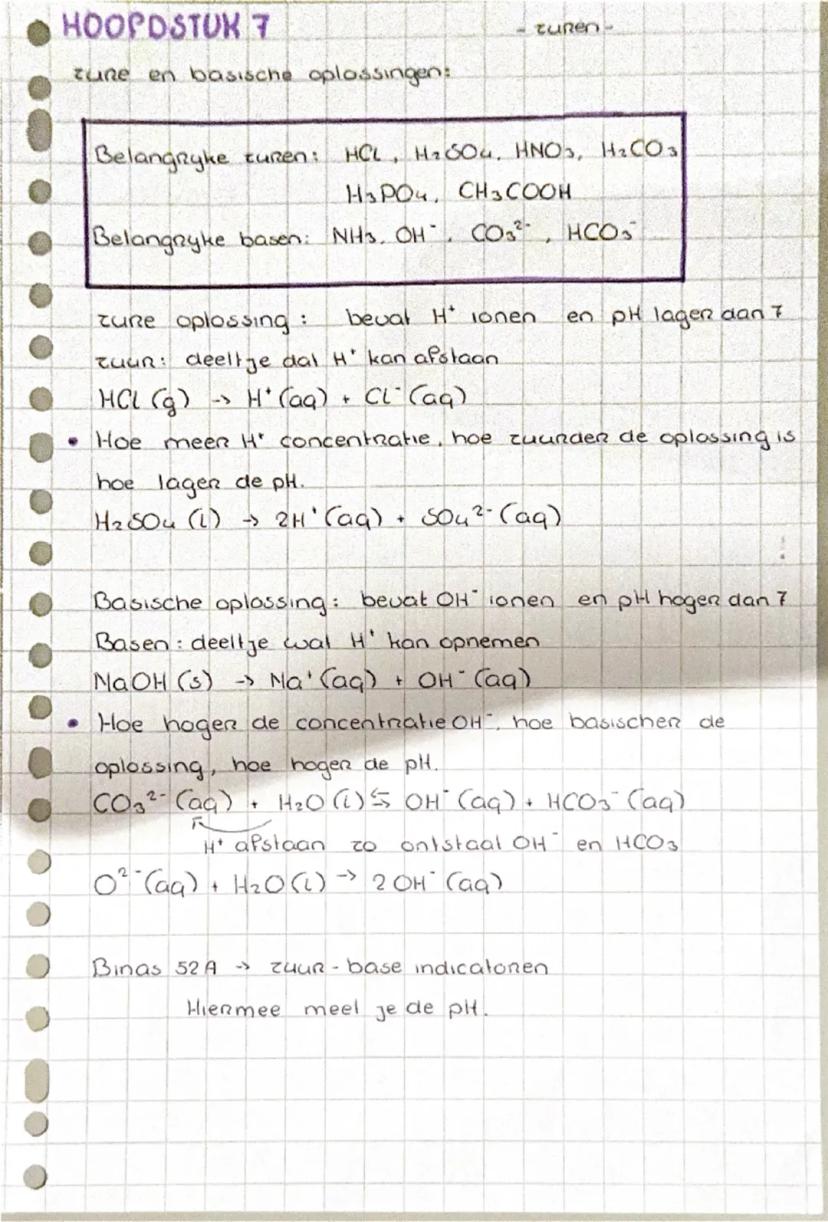 HOOFDSTUK 7 - zuren -
zure en basische oplossingen:
Belangryke zuren: HCl, H₂SO₄, HNO₃, H₂CO₃
H₃PO₄, CH₃COOH
Belangryke basen: NH₃, OH⁻, CO₃²⁻, HCO₃⁻
zure oplossing: bevat H⁺ ionen en pH lager dan 7
zuur: deeltje dat H⁺ kan afstaan
HCl (g) → H⁺ (aq) + Cl⁻ (aq)
• Hoe meer H⁺ concentratie, hoe zuurder de oplossing is
hoe lager de pH.
H₂SO₄ (l) → 2H⁺ (aq) + SO₄²⁻ (aq)
Basische oplossing: bevat OH⁻ ionen en pH hoger dan 7
Basen: deeltje wat H⁺ kan opnemen
NaOH (s) → Na⁺ (aq) + OH⁻ (aq)
• Hoe hoger de concentratie OH⁻, hoe basischer de
oplossing, hoe hoger de pH.
CO₃²⁻ (aq) + H₂O (l) ⇆ OH⁻ (aq) + HCO₃⁻ (aq)
H⁺ afstaan zo ontstaat OH⁻ en HCO₃
O²⁻ (aq) + H₂O (l) → 2 OH⁻ (aq)
Binas 52A → zuur-base indicatoren
Hiermee meet je de pH.